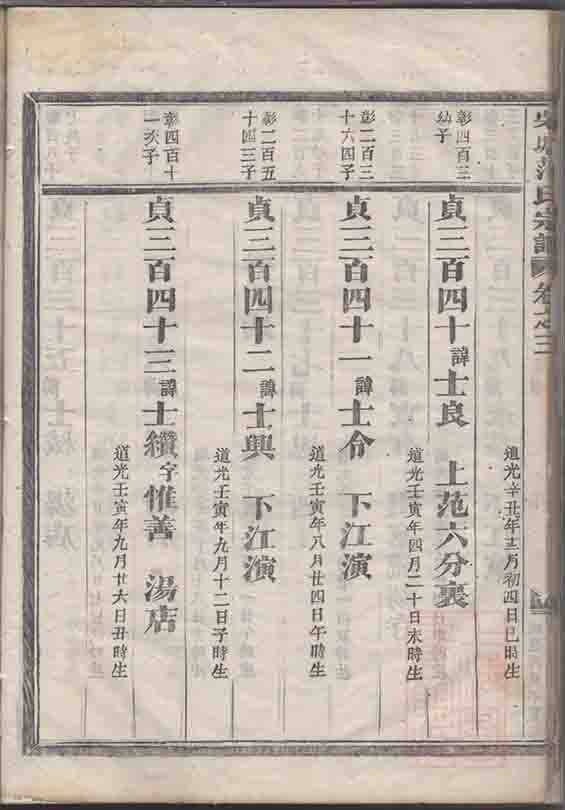 范氏宗譜 卷之三
道光辛丑年十二月初四日巳時生
彰四百三
幼子
貞三百四十 諱士良 上范六分裏
道光壬寅年四月二十日未時生
彰二百三
十六四子
貞三百四十一 諱士令 下江演
道光壬寅年八月廿四日午時生
彰二百五
十四三子
貞三百四十二 諱士興 下江演
道光壬寅年九月十二日子時生
彰四百十
一次子
貞三百四十三 諱士纘 字惟善 湯店
道光壬寅年九月廿六日丑時生